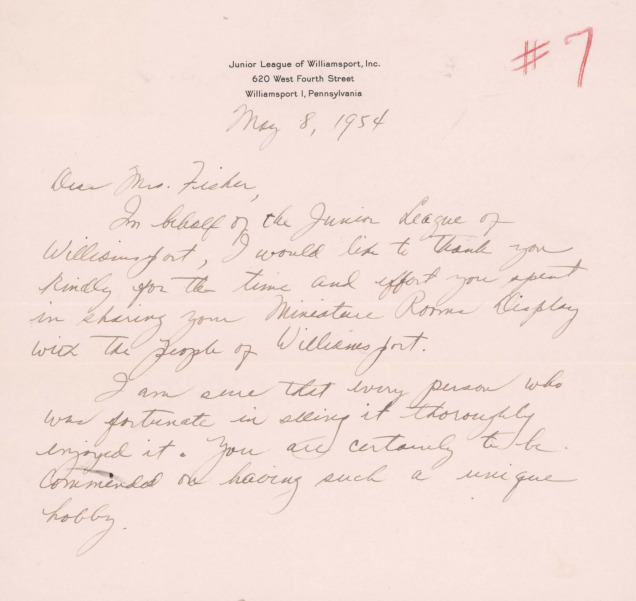 Junior League of Williamsport, Inc.
620 West Fourth Street
Williamsport 1, Pennsylvania
#7
May 8, 1954
Dear Mrs. Fisher,
In behalf of the Junior League of
Williamsport, I would like to thank you
kindly for the time and effort you spent
in sharing your Miniature Rooms Display
with the people of Williamsport.
I am sure that every person who
was fortunate in seeing it thoroughly
enjoyed it. You are certainly to be
commended on having such a unique
hobby.